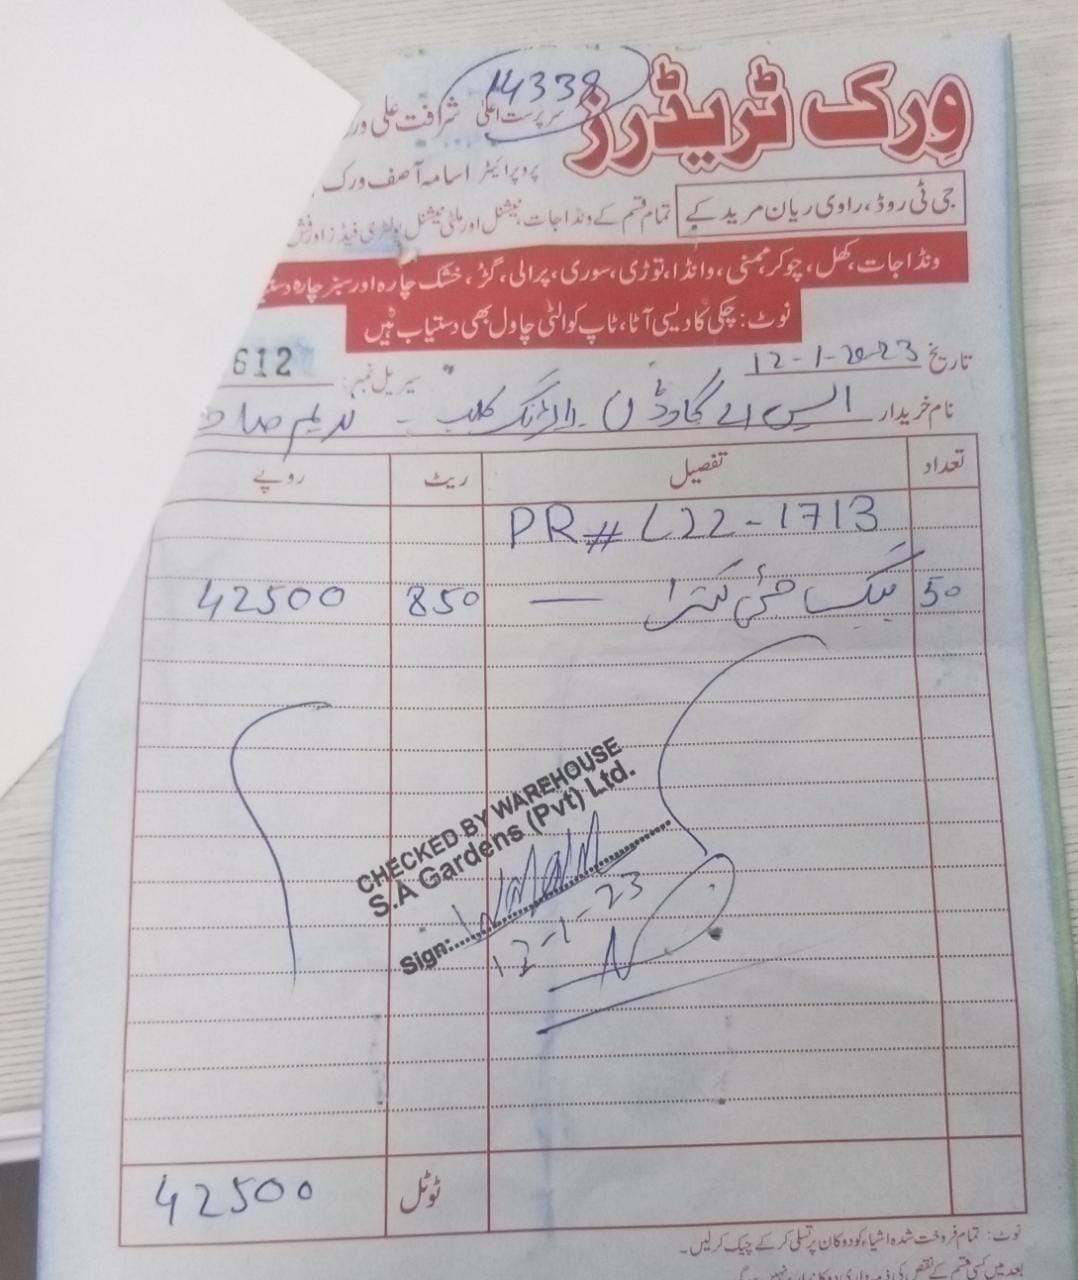 14338
وِرک ٹریڈرز
سرپرست اعلیٰ شرافت علی ور
پروپرائیٹر اسامہ آصف ورک
جی ٹی روڈ، راوی ریان مریدکے
تمام قسم کے ونڈا جات، نیشنل اور ملٹی نیشنل پولٹری فیڈز اور فش
ونڈا جات، کھل، چوکر، ممنی، وانڈا، توڑی، سوری، پرالی، گڑ، خشک چارہ اور سبز چارہ دستیـ
نوٹ: چکی کا دیسی آٹا، ٹاپ کوالٹی چاول بھی دستیاب ہیں
تاریخ 12-1-2023 سیریل نمبر: 612
نام خریدار ایس اے گارڈن رائیڈنگ کلب - ندیم صاحب
تعداد تفصیل ریٹ روپے
PR# L22-1713
50 بیگ جئی کترا — 850 42500
CHECKED BY WAREHOUSE
S.A Gardens (Pvt) Ltd.
Sign:
12-1-23
ٹوٹل 42500
نوٹ: تمام فروخت شدہ اشیاء کو دوکان پر تسلی کر کے چیک کر لیں۔